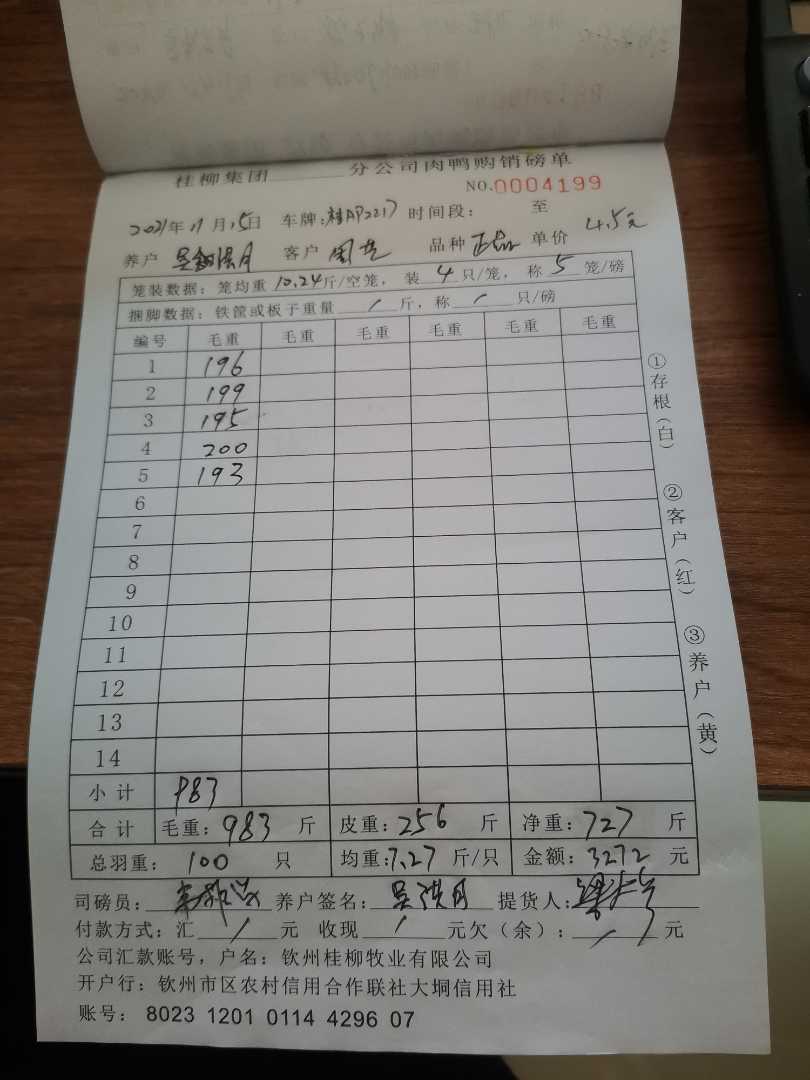 桂柳集团______分公司肉鸭购销磅单
NO.0004199
2021年11月15日 车牌:桂AP2217 时间段: 至
养户 吴 洪月 客户 周 品种 正品 单价 4.5元
笼装数据: 笼均重 10.24 斤/空笼, 装 4 只/笼, 称 5 笼/磅
捆脚数据: 铁筐或板子重量 / 斤, 称 / 只/磅
编号 毛重 毛重 毛重 毛重 毛重 毛重
1 196
2 199
3 195
4 200
5 193
6
7
8
9
10
11
12
13
14
小计 983
合计 毛重: 983 斤 皮重: 256 斤 净重: 727 斤
总羽重: 100 只 均重: 7.27 斤/只 金额: 3272 元
司磅员: 养户签名: 吴洪月 提货人:
付款方式: 汇 / 元 收现 / 元欠(余): / 元
公司汇款账号, 户名: 钦州桂柳牧业有限公司
开户行: 钦州市区农村信用合作联社大垌信用社
账号: 8023 1201 0114 4296 07
①存根(白) ②客户(红) ③养户(黄)